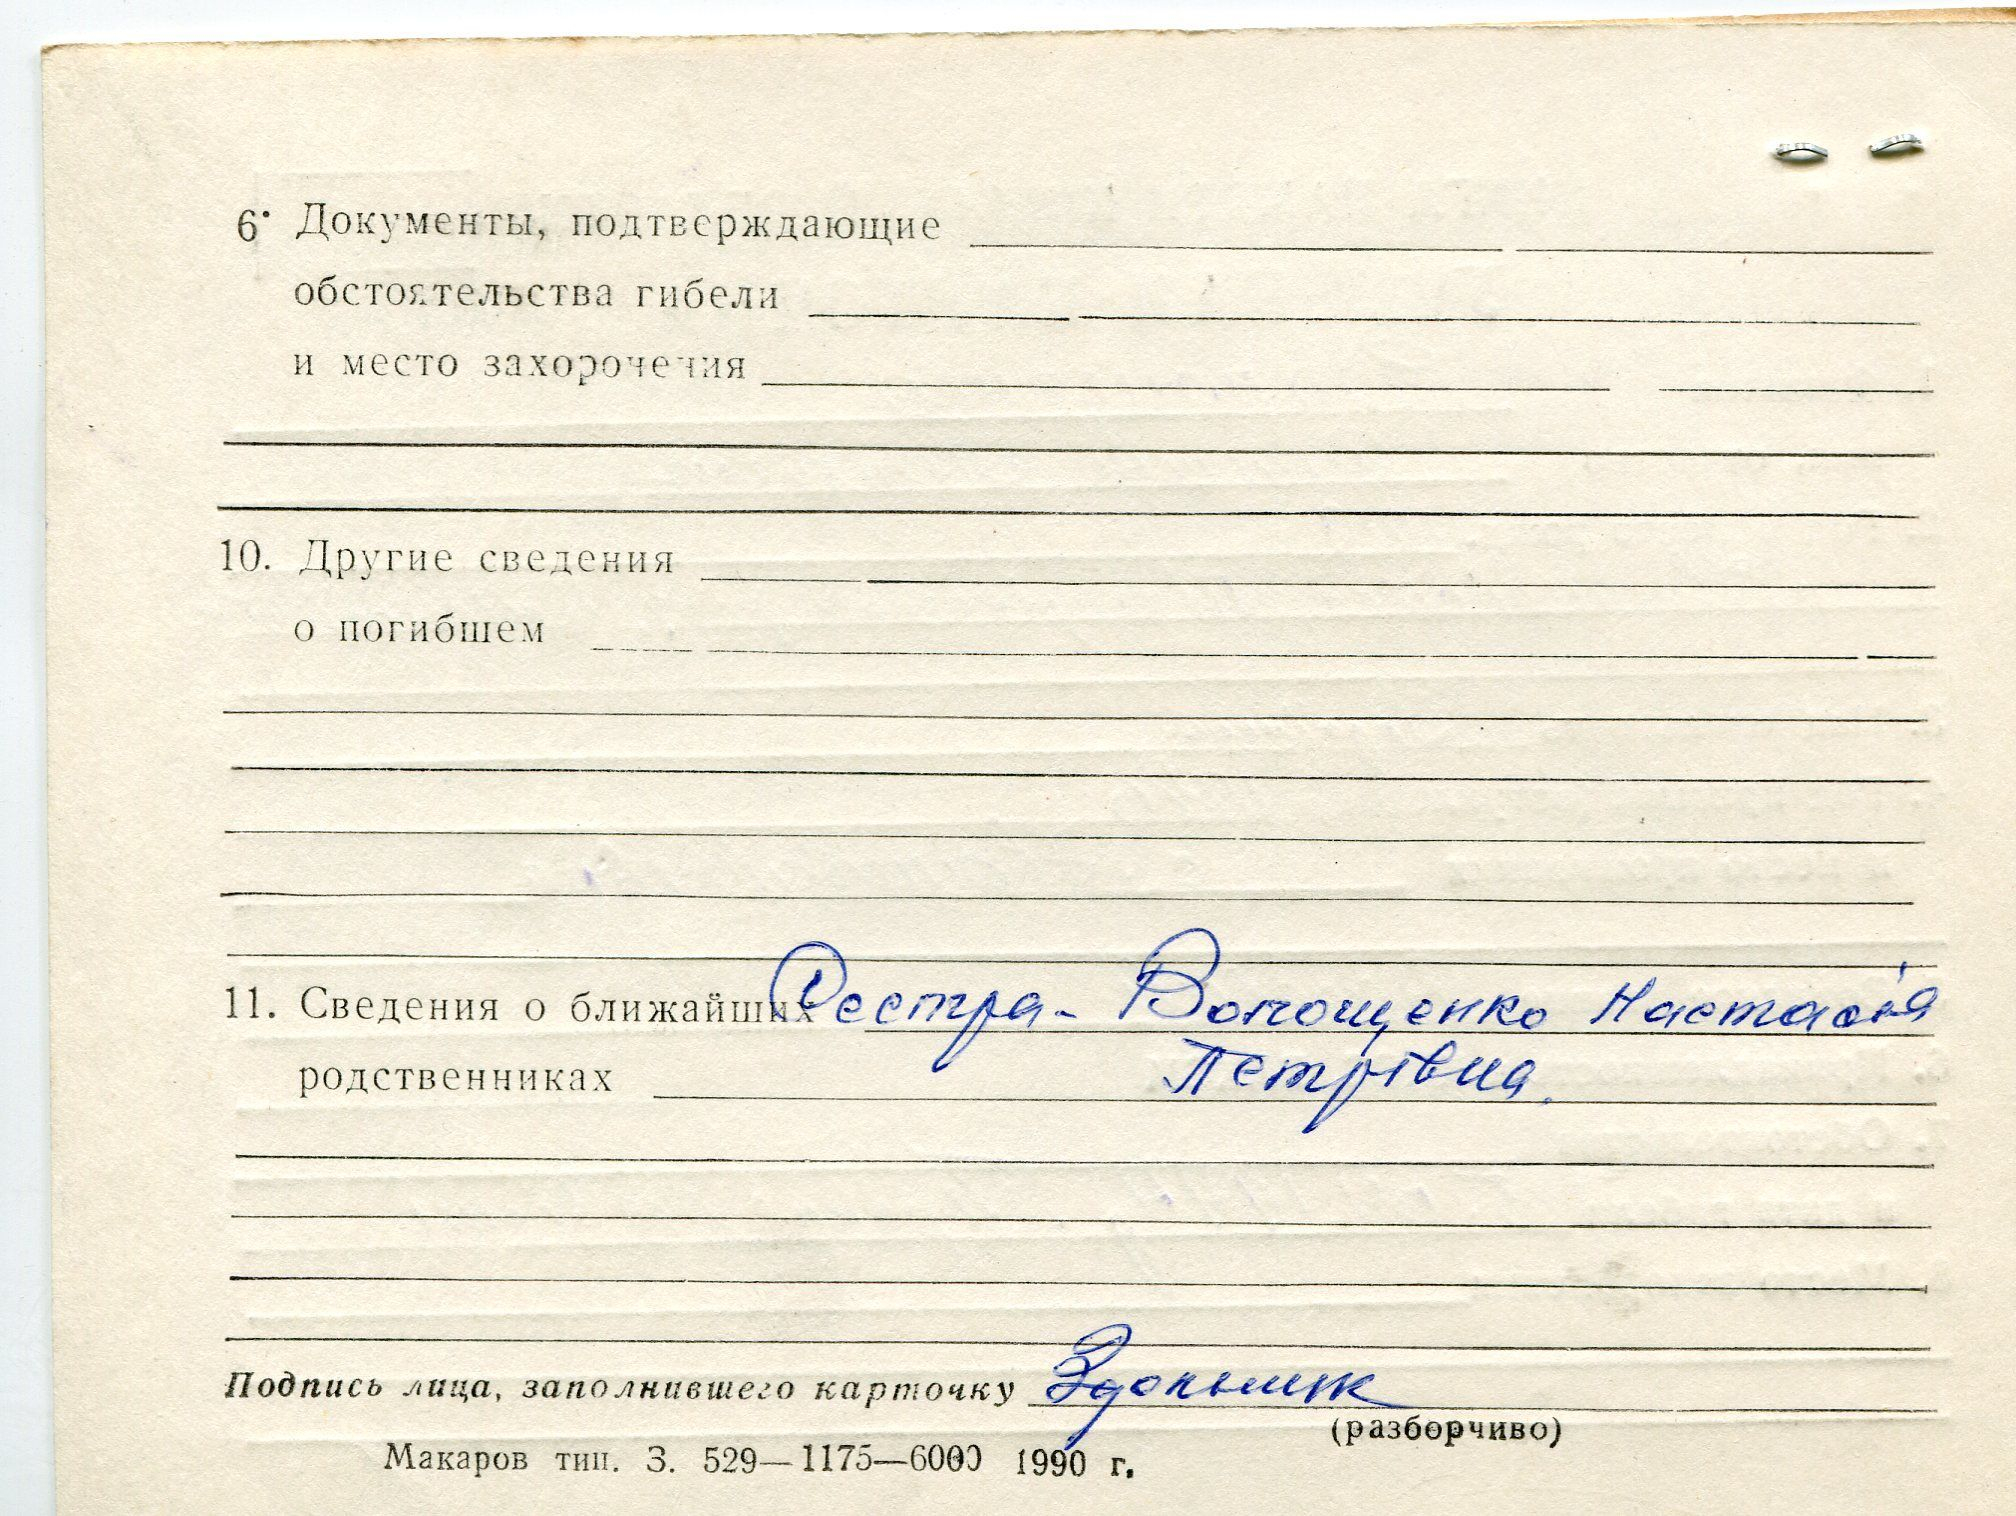 6. Документы, подтверждающие
обстоятельства гибели
и место захорочения
10. Другие сведения
о погибшем
11. Сведения о ближайших Сестра - Волощенко Настасія
родственниках Петрівна.
Подпись лица, заполнившего карточку
(разборчиво)
Макаров тип. З. 529—1175—6000 1990 г.